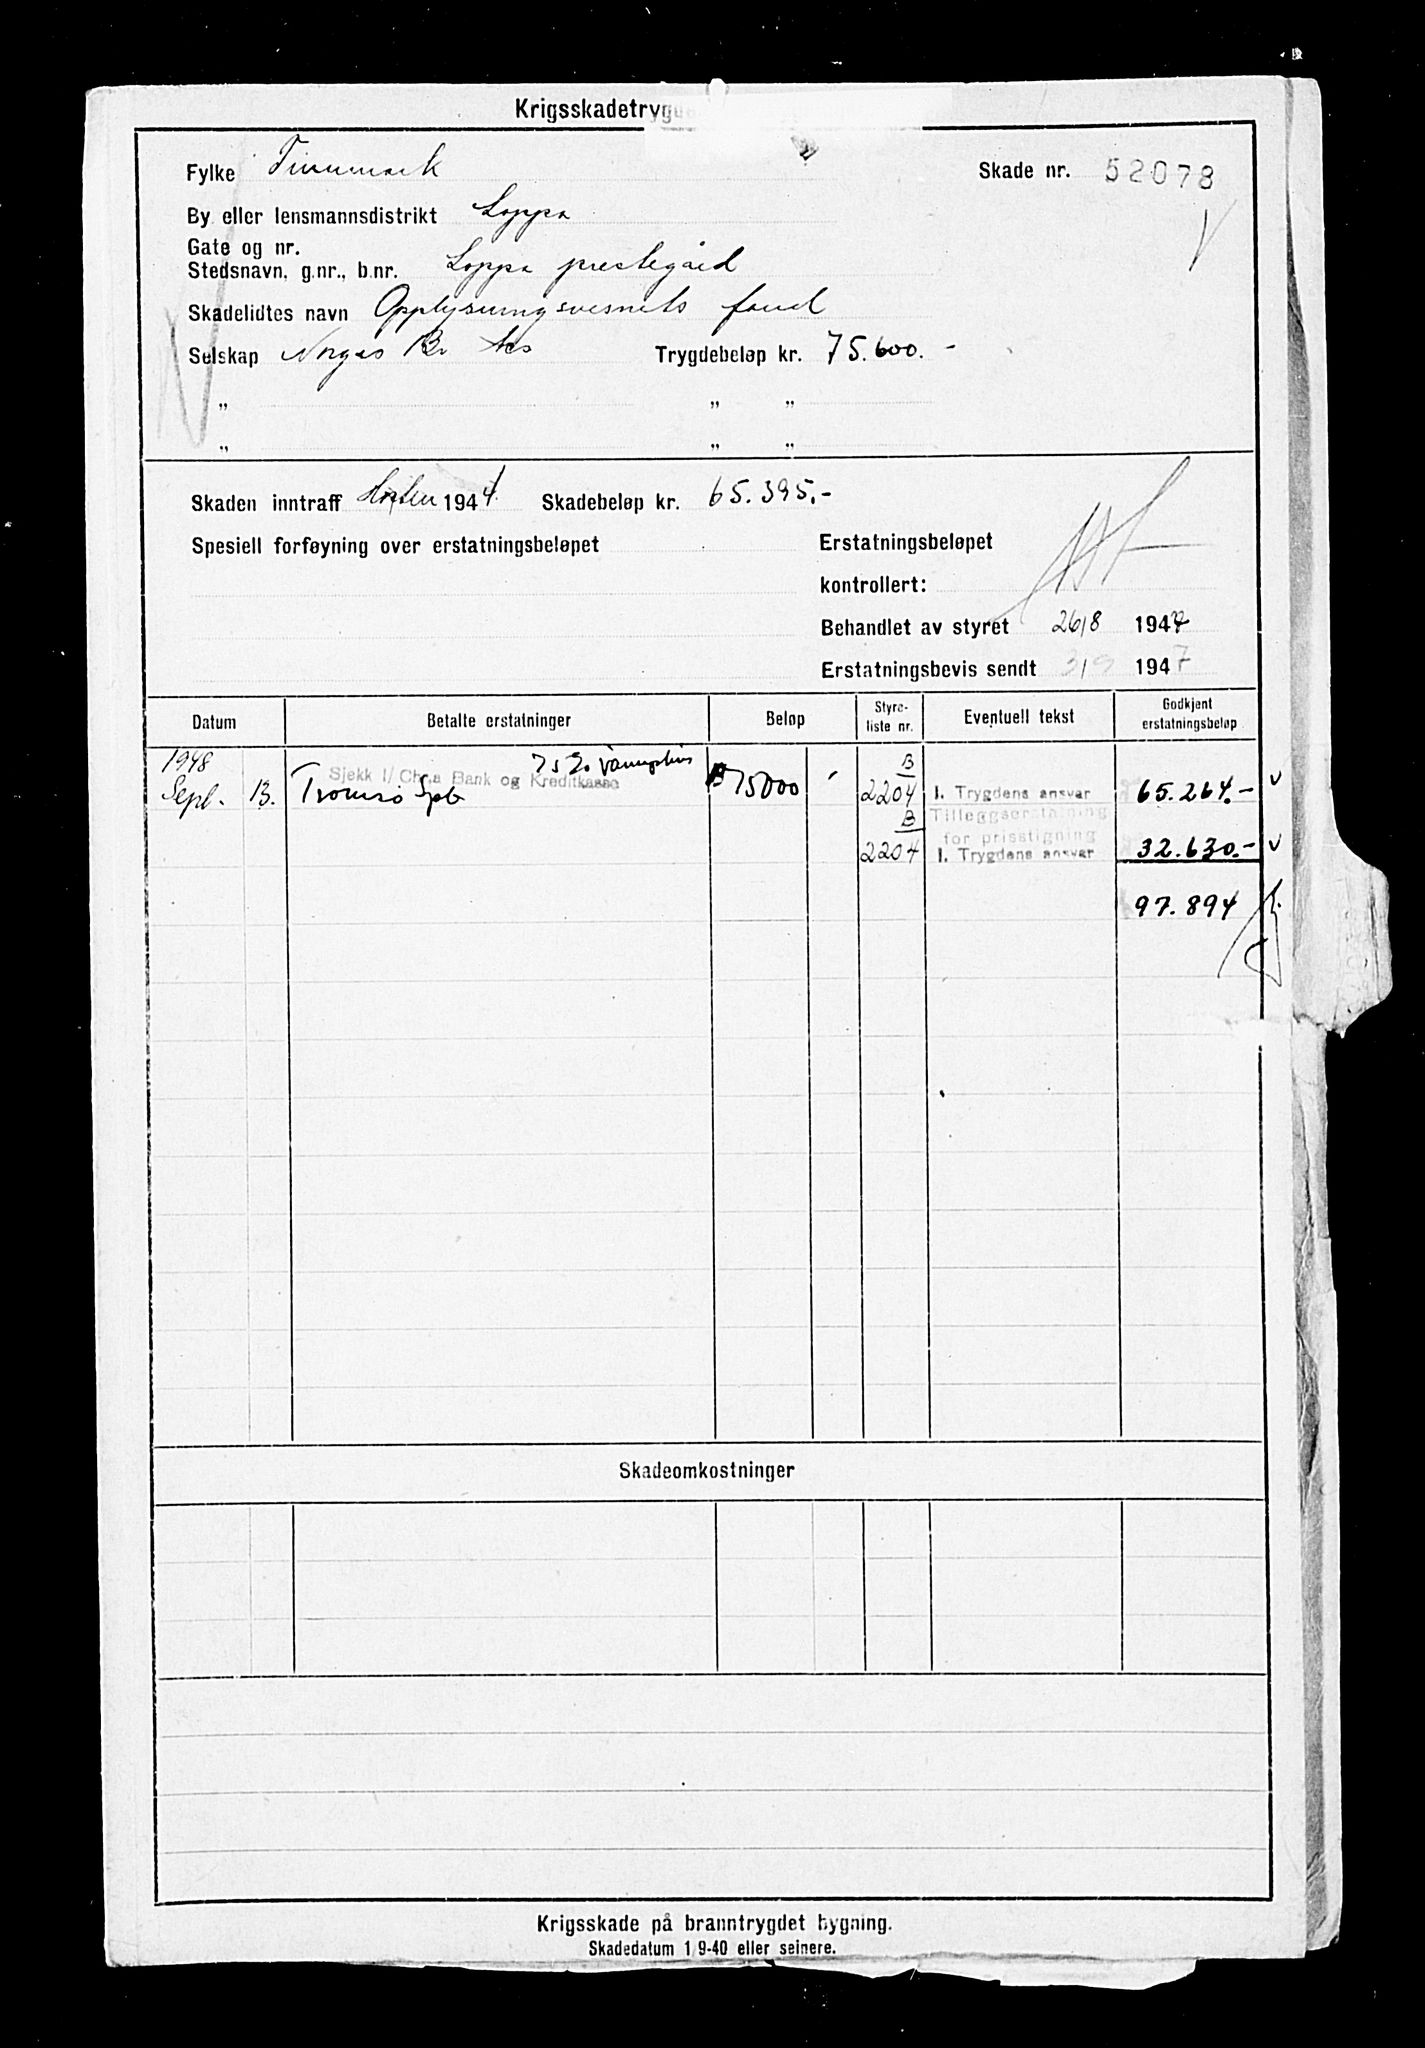 Krigsskadetrygd
Fylke Finnmark Skade nr. 52078
By eller lensmannsdistrikt Loppa
Gate og nr.
Stedsnavn, g.nr., b.nr. Loppa prestegård
Skadelidtes navn Opplysningsvesnets fond
Selskap Norges Br Trygdebeløp kr. 75.600.-
„ „ „
„ „ „
Skaden inntraff Høsten 1944 Skadebeløp kr. 65.395,-
Spesiell forføyning over erstatningsbeløpet Erstatningsbeløpet
kontrollert:
Behandlet av styret 26/8 1947
Erstatningsbevis sendt 3/9 1947
Datum Betalte erstatninger Beløp Styre-liste nr. Eventuell tekst Godkjent erstatningsbeløp
1948 B
Sjekk I/ Chr.a Bank og Kreditkasse
Sept. 13. Tromsø Spb 75000 2204 I. Trygdens ansvar 65.264.-
B Tilleggserstatning
for prisstigning
2204 I. Trygdens ansvar 32.630.-
97.894
Skadeomkostninger
Krigsskade på branntrygdet bygning.
Skadedatum 1/9-40 eller seinere.